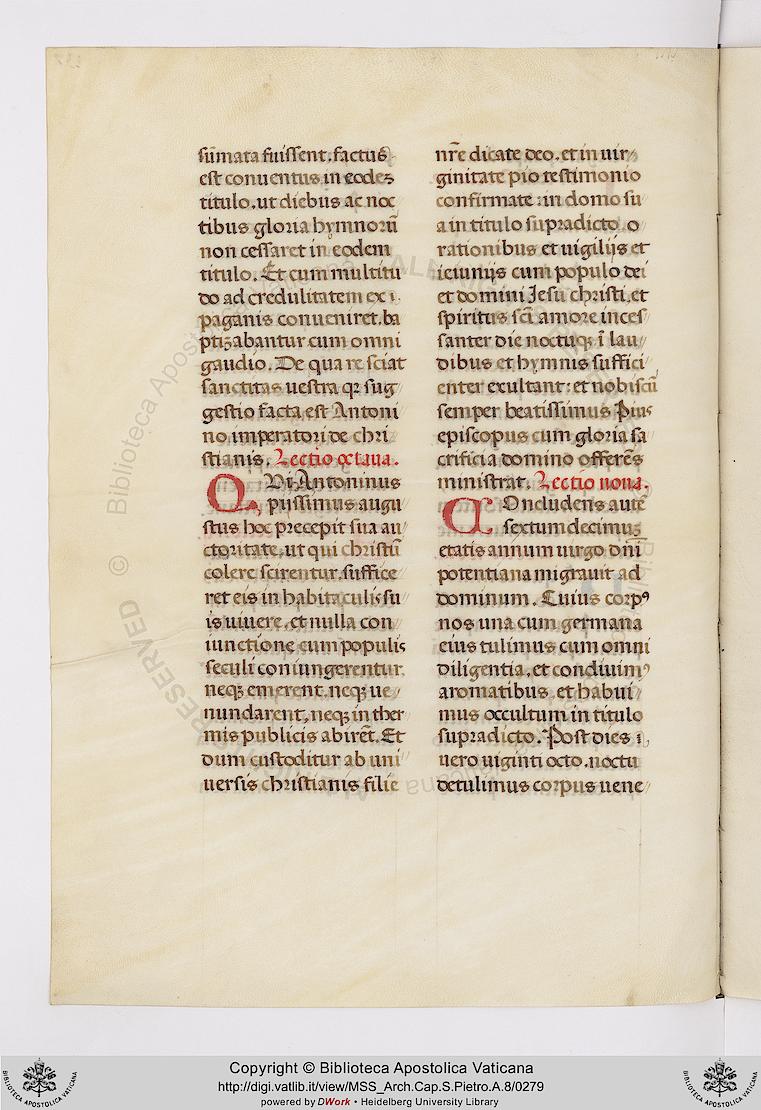 sūmata fuissent. factus
est conuentus in eodeȝ
titulo. ut diebus ac noc
tibus gloria hymnorū
non cessaret in eodem
titulo. Et cum multitu
do ad credulitatem ex
paganis conueniret. ba
ptizabantur cum omni
gaudio. De qua re sciat
sanctitas uestra qꝛ sug
gestio facta est Antoni
no imperatori de chri
stianis. Lectio octaua.
QVi Antoninus
piissimus augu
stus hoc precepit sua au
ctoritate. ut qui christū
colere scirentur. suffice
ret eis in habitaculis su
is uiuere. et nulla con
iunctione cum populis
seculi coniungerentur.
neqꝫ emerent. neqꝫ ue
nundarent. neqꝫ in ther
mis publicis abirēt. Et
dum custoditur ab uni
uersis christianis filie
nr̄e dicate deo. et in uir
ginitate pio testimonio
confirmate: in domo su
a in titulo supradicto. o
rationibus et uigiliis et
ieiuniis cum populo dei
et domini Iesu christi. et
spiritus sc̄i amore inces
santer die noctuqꝫ ī lau
dibus et hymnis suffici
enter exultant: et nobiscū
semper beatissimus Pius
episcopus cum gloria sa
crificia domino offerēs
ministrat. Lectio nona.
COncludens autē
sextum decimuȝ
etatis annum uirgo dn̄i
potentiana migrauit ad
dominum. Cuius corpꝰ
nos una cum germana
eius tulimus cum omni
diligentia. et condiuimꝰ
aromatibus. et habui
mus occultum in titulo
supradicto. Post dies
uero uiginti octo. noctu
detulimus corpus uene
© Biblioteca Apostolica Vaticana
Copyright © Biblioteca Apostolica Vaticana
http://digi.vatlib.it/view/MSS_Arch.Cap.S.Pietro.A.8/0279
powered by DWork • Heidelberg University Library
BIBLIOTECA APOSTOLICA VATICANA
BIBLIOTECA APOSTOLICA VATICANA